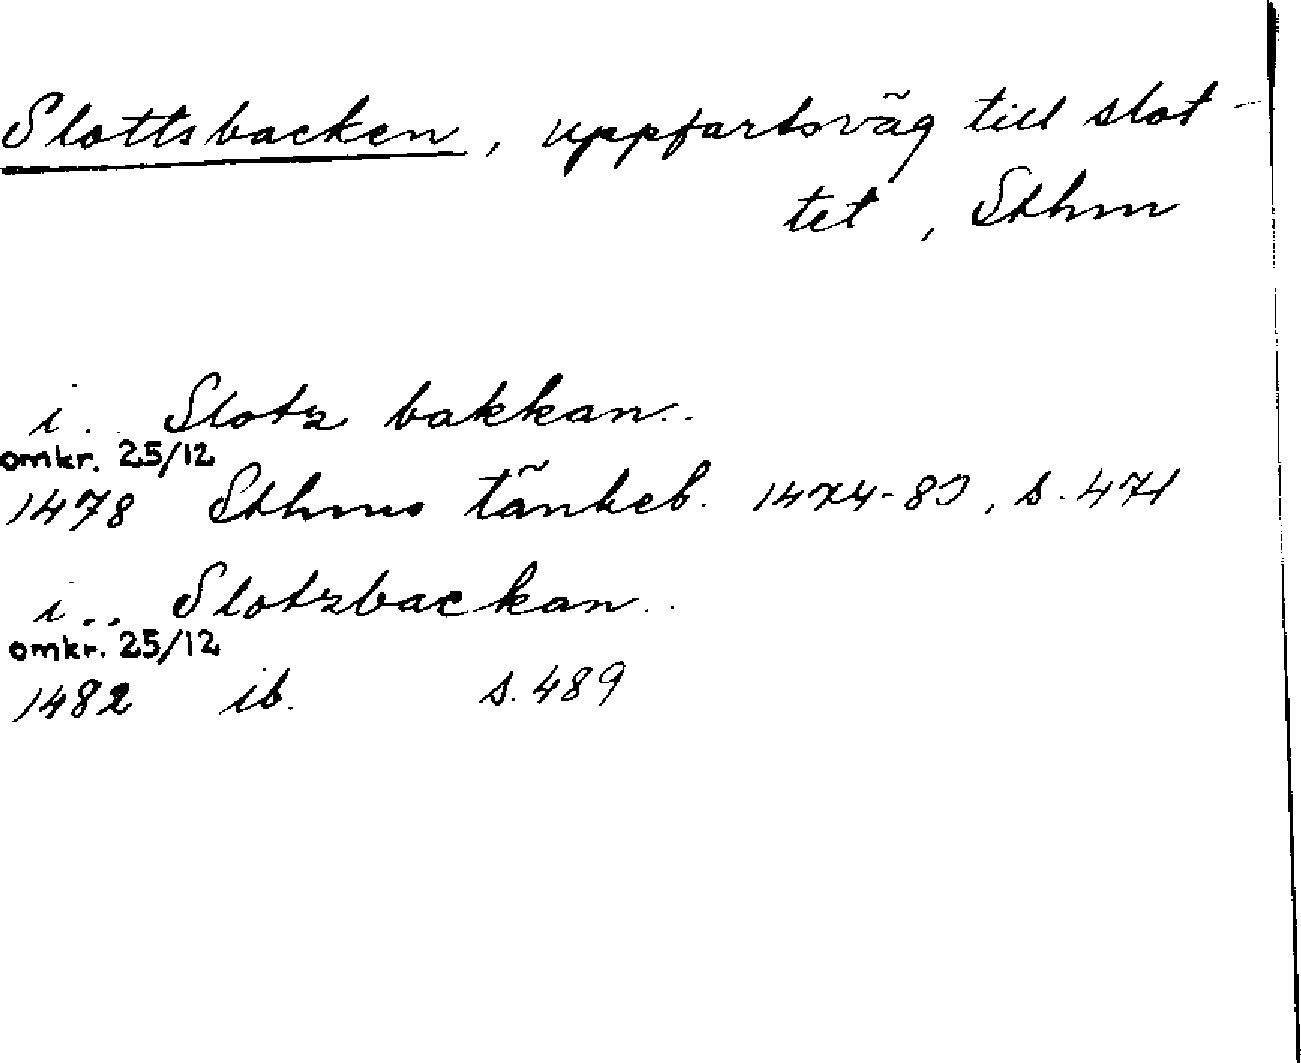 Slottsbacken, uppfartsväg till slot-
tet, Sthm
i.. Slotz bakkan..
omkr. 25/12
1478 Sthms tänkeb. 1474-83, s. 471
i... Slotzbackan..
omkr. 25/12
1482 ib. s. 489